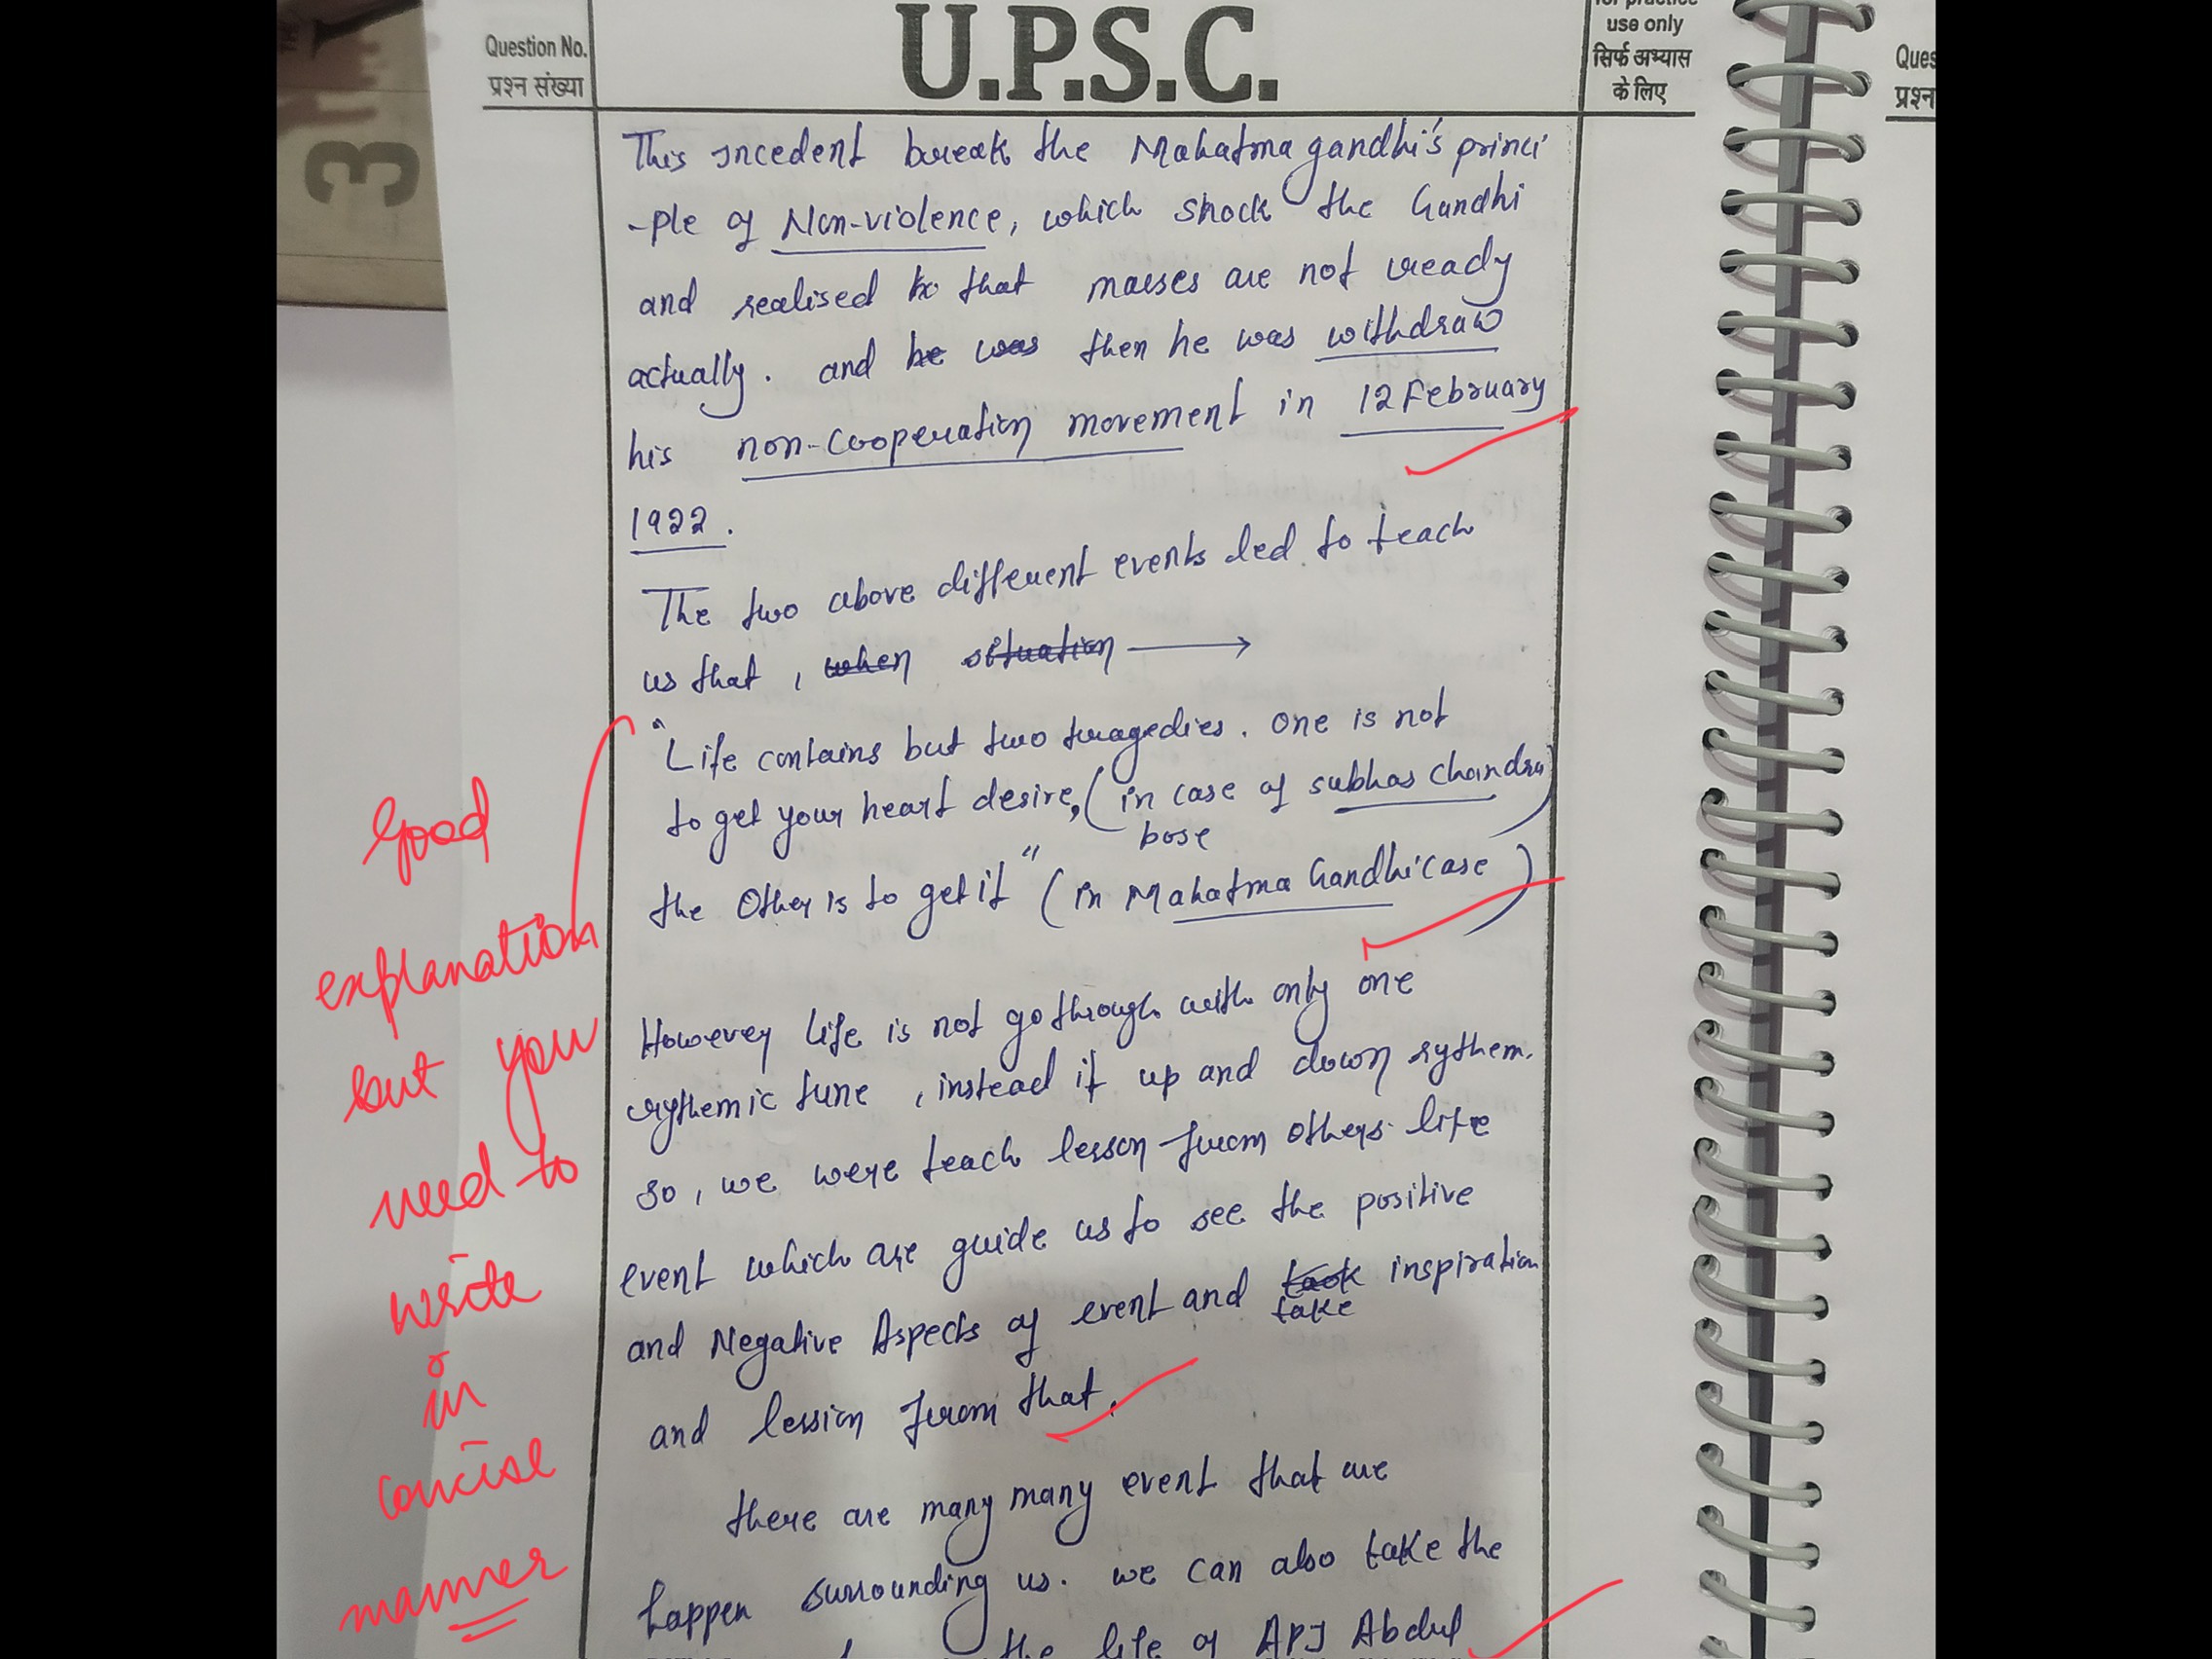 Question No.
प्रश्न संख्या
U.P.S.C.
use only
सिर्फ अभ्यास
के लिए
Ques
प्रश्न
3
This incedent break the Mahatma gandhi's princi
-ple of Non-violence, which shock the Gandhi
and realised to that masses are not ready
actually. and he was then he was withdraw
his non-cooperation movement in 12 February
1922.
The two above different events led to teach
us that, when situation →
"Life contains but two tragedies. One is not
to get your heart desire, (in case of subhas Chandra
bose)
the Other is to get it" (in Mahatma Gandhi case)
However life is not go through with only one
rythemic tune, instead it up and down rythem.
so, we were teach lesson from others life
event which are guide us to see the positive
and Negative Aspects of event and took inspiration
take
and lession from that.
there are many many event that are
happen surrounding us. we can also take the
the life of APJ Abdul
Good
explanation
but you
need to
write
in
concise
manner